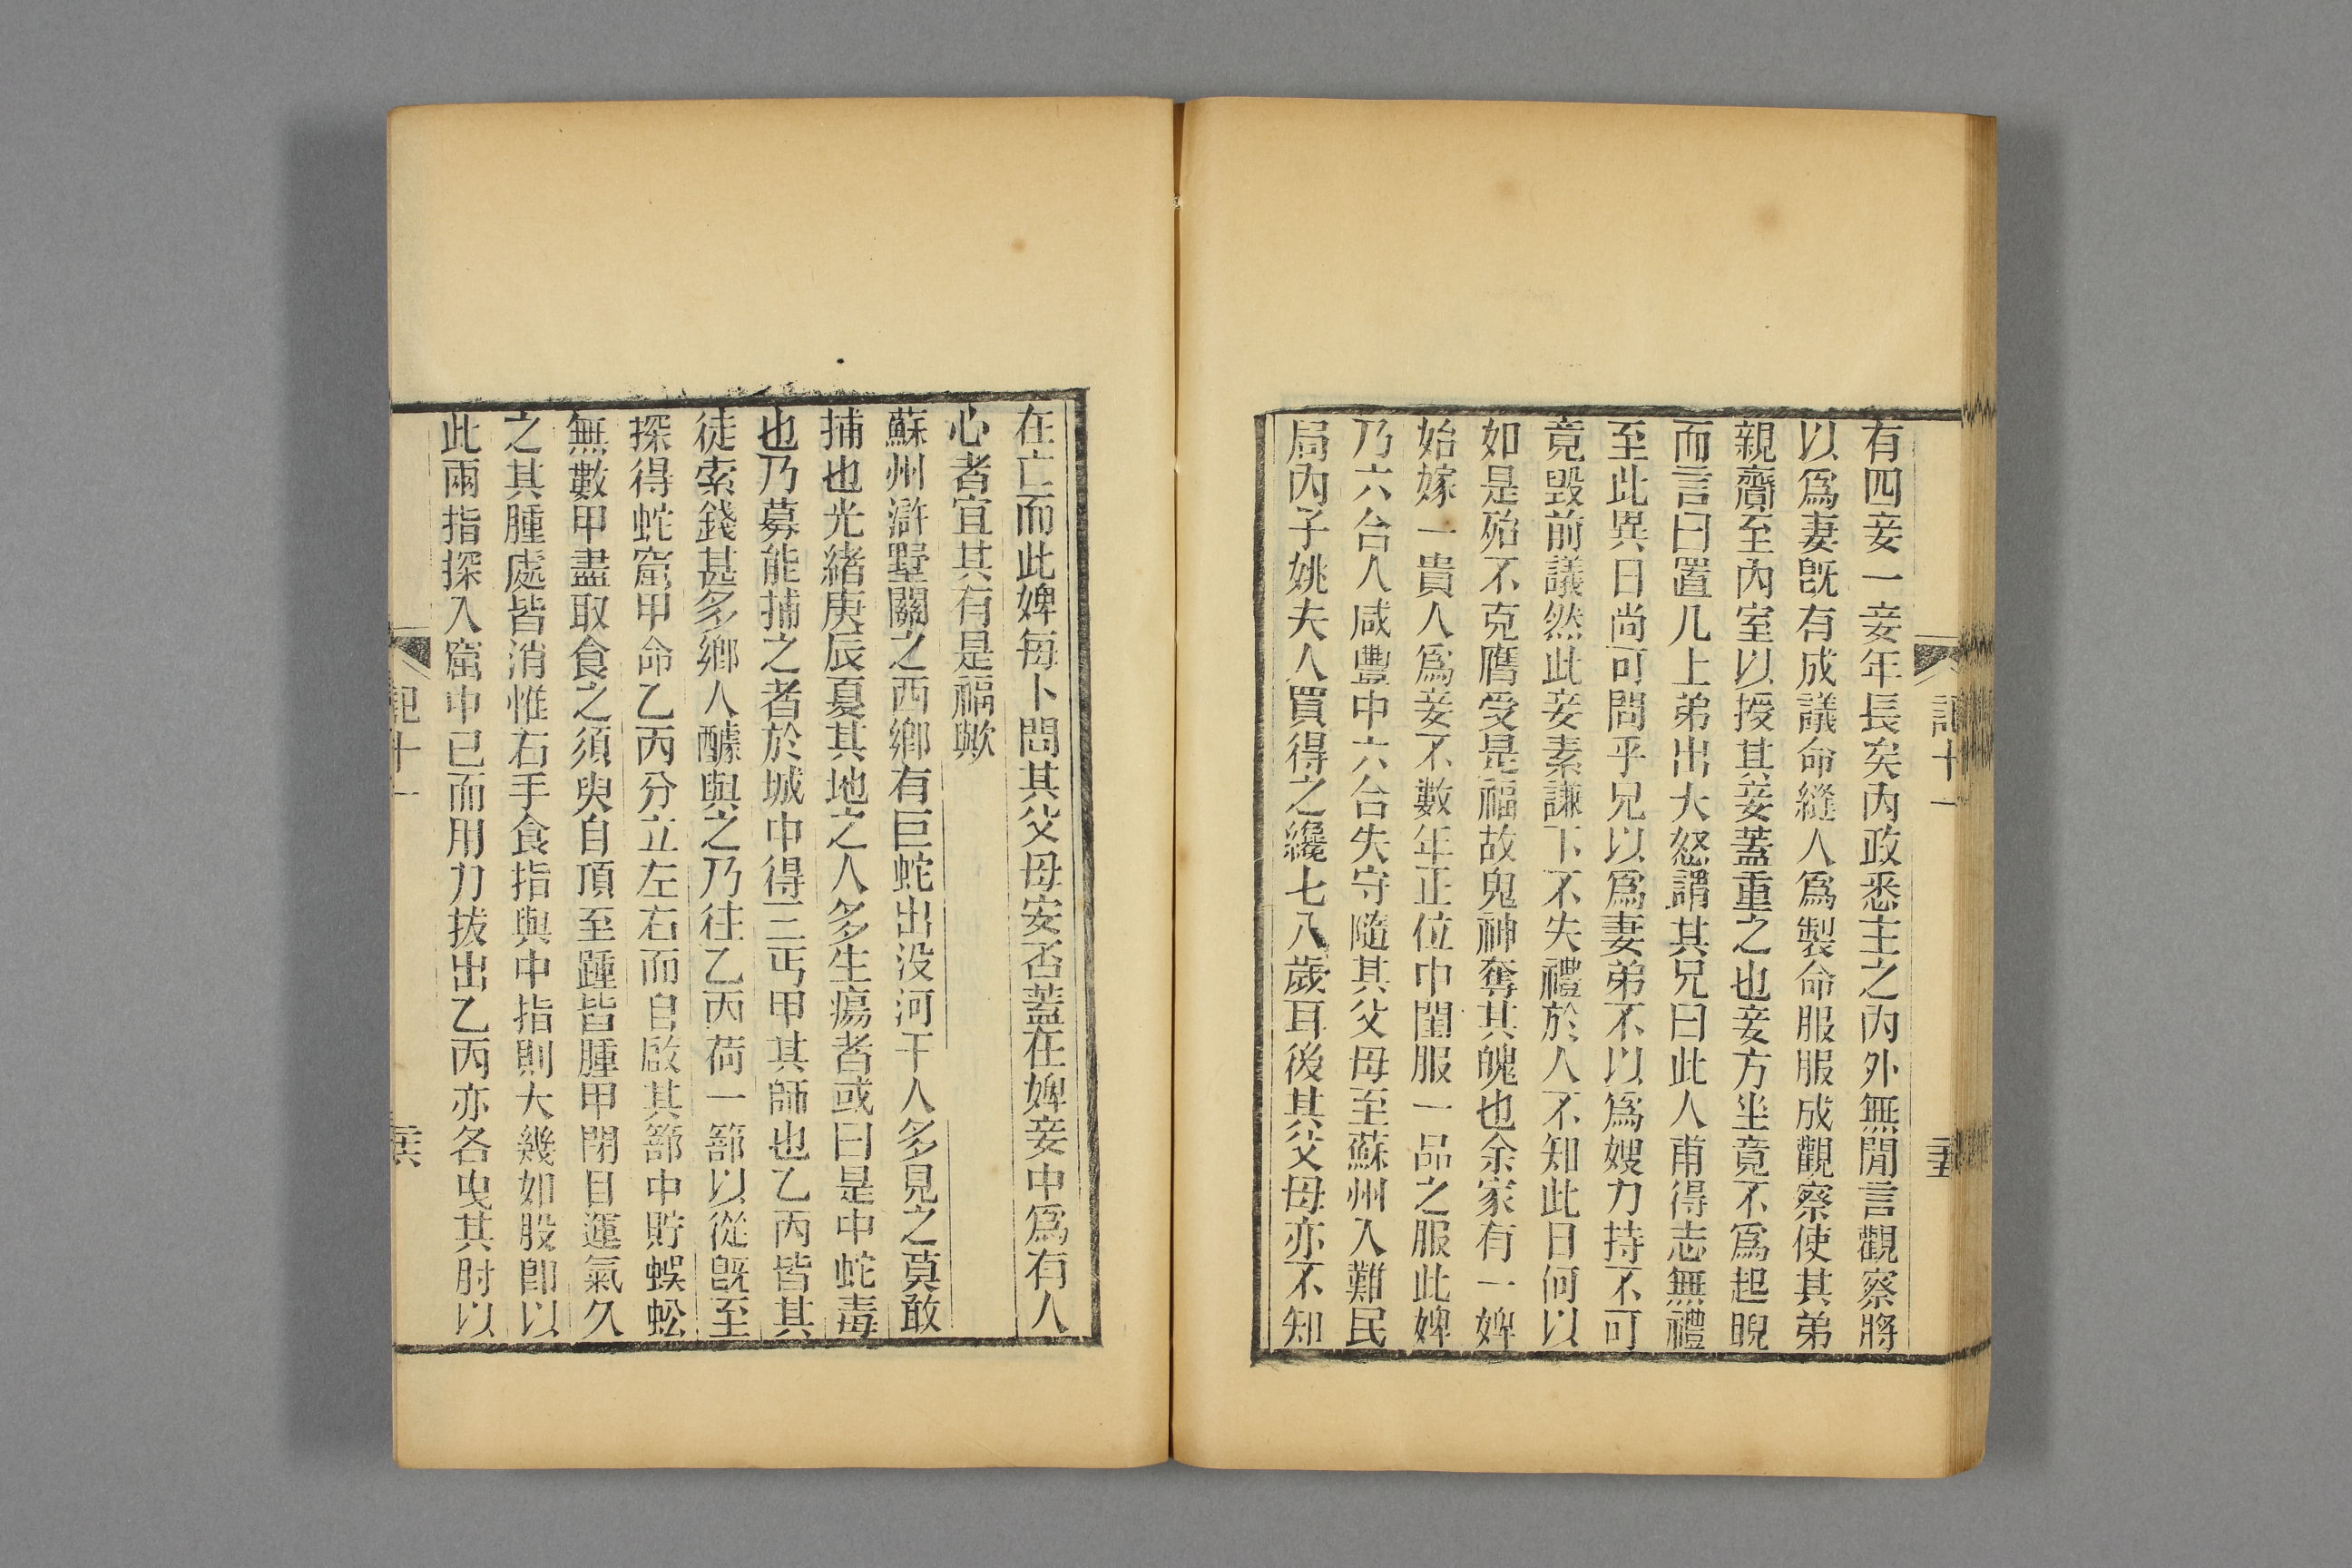 有四妾一妾年長矣內政悉主之內外無閒言觀察將
以爲妻旣有成議命縫人爲製命服服成觀察使其弟
親齎至內室以授其妾蓋重之也妾方坐竟不爲起睨
而言曰置几上弟出大怒謂其兄曰此人甫得志無禮
至此異日尚可問乎兄以爲妻弟不以爲嫂力持不可
竟毀前議然此妾素謙下不失禮於人不知此日何以
如是殆不克膺受是福故鬼神奪其魄也余家有一婢
始嫁一貴人爲妾不數年正位中閨服一品之服此婢
乃六合人咸豐中六合失守隨其父母至蘇州入難民
局內子姚夫人買得之纔七八歲耳後其父母亦不知
在亡而此婢每卜問其父母安否蓋在婢妾中爲有人
心者宜其有是福歟
蘇州滸墅關之西鄉有巨蛇出没河干人多見之莫敢
捕也光緒庚辰夏其地之人多生瘍者或曰是中蛇毒
也乃募能捕之者於城中得三丐甲其師也乙丙皆其
徒索錢甚多鄉人醵與之乃往乙丙荷一篰以從旣至
探得蛇窟甲命乙丙分立左右而自啟其篰中貯蜈蚣
無數甲盡取食之須臾自頂至踵皆腫甲閉目運氣久
之其腫處皆消惟右手食指與中指則大幾如股卽以
此兩指探入窟中已而用力拔出乙丙亦各曳其肘以
記十一